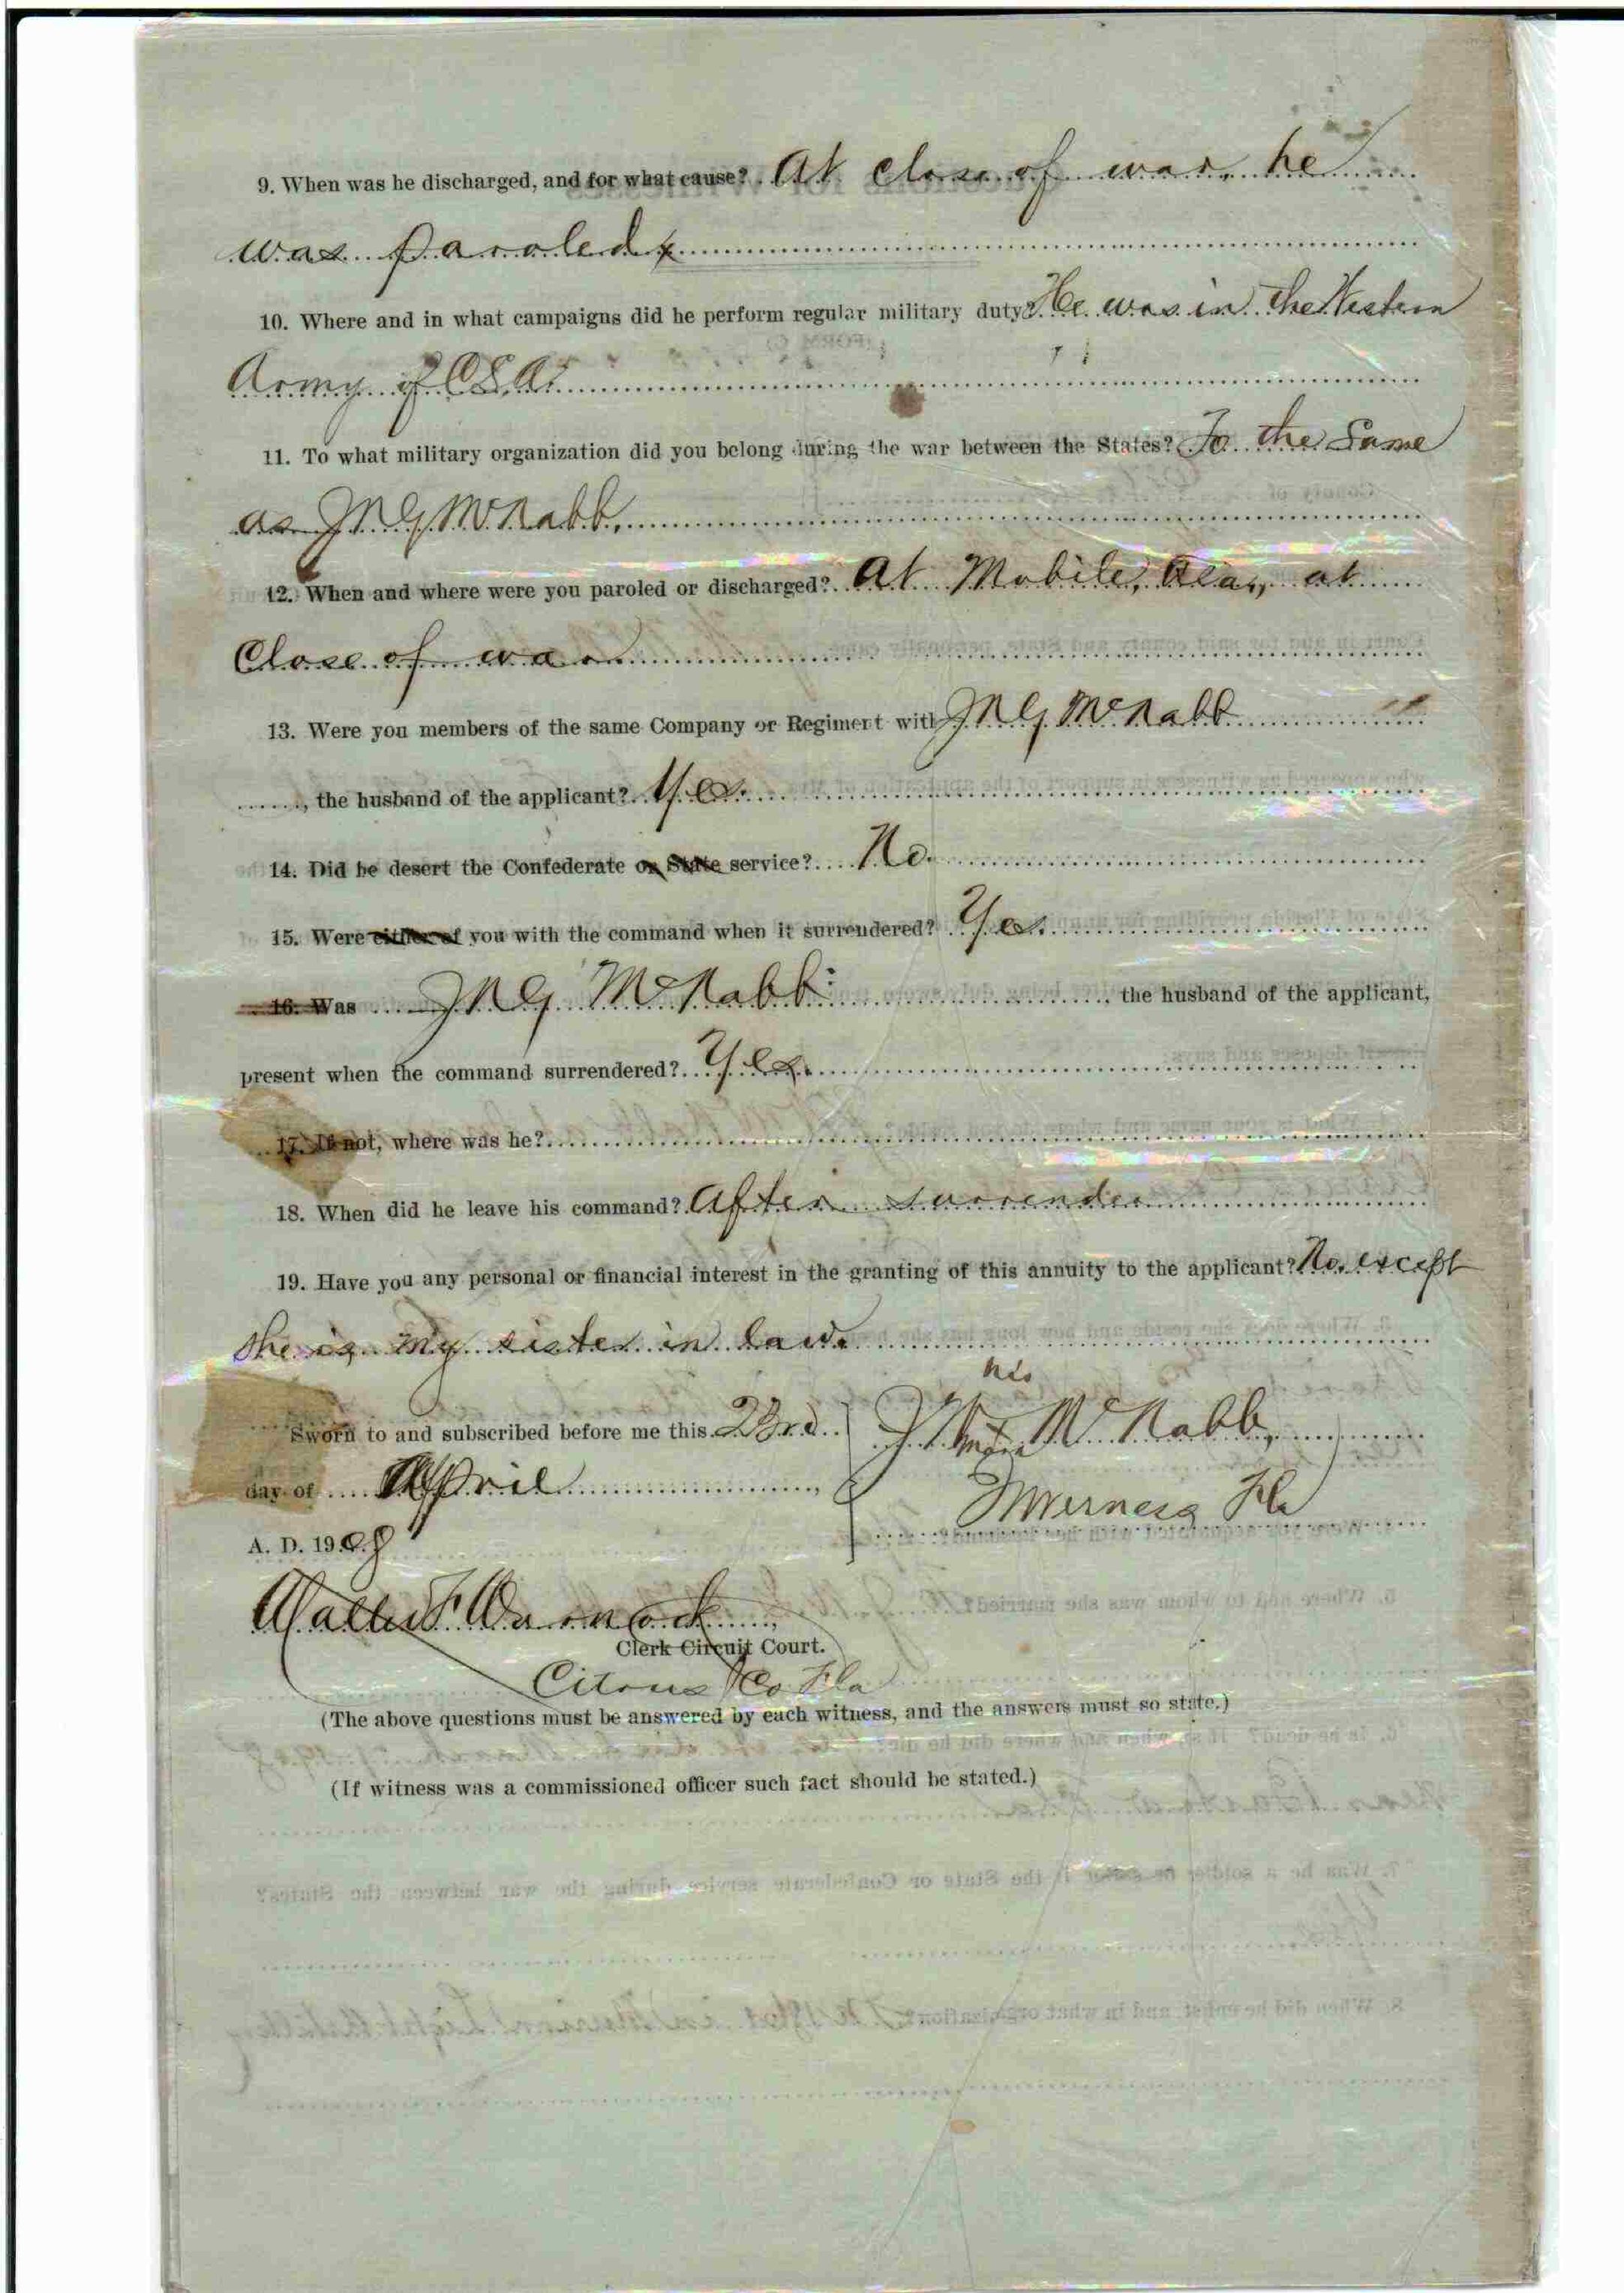 9. When was he discharged, and for what cause? At close of war, he
was paroled
10. Where and in what campaigns did he perform regular military duty? He was in the Western
Army of C.S.A.
11. To what military organization did you belong during the war between the States? To the Same
as J N G McNabb.
12. When and where were you paroled or discharged? At Mobile, Ala, at
Close of war
13. Were you members of the same Company or Regiment with J N G McNabb
, the husband of the applicant? Yes.
14. Did he desert the Confederate or State service? No.
15. Were either of you with the command when it surrendered? Yes.
16. Was J N G McNabb the husband of the applicant,
present when the command surrendered? Yes.
17. If not, where was he?
18. When did he leave his command? After surrender
19. Have you any personal or financial interest in the granting of this annuity to the applicant? No, except
she is my sister in law.
his
Sworn to and subscribed before me this 23rd McNabb,
mark
day of April
Inverness Fla
A. D. 1908
Walter F Warnock
Clerk Circuit Court.
Citrus Co Fla
(The above questions must be answered by each witness, and the answers must so state.)
(If witness was a commissioned officer such fact should be stated.)